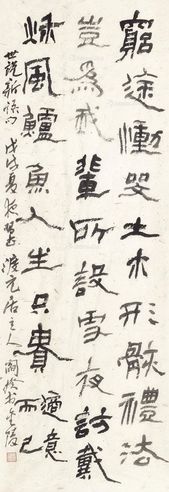 窮途慟哭土木形骸禮法
豈為我輩所設雪夜訪戴
秋風鱸魚人生只貴適意而已
世說新語句 戊戌夏夜 居主人 於金陵